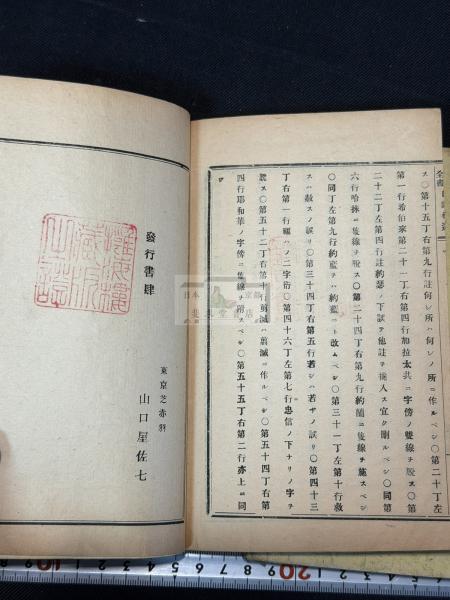 ス〇第十五丁右第九行註何シ所ハ何レノ所ニ作ルベシ〇第二十丁左
第一行希伯家第二十一丁右第四行加拉太共ニ字傍ノ雙線ヲ脱ス〇第
二十二丁左第四行註約瑟ノ下誤テ他註ヲ攙入ス宜ク刪ルベシ〇同第
六行哈抹ニ隻線ヲ脱ス〇第二十四丁右第九行約簡ニ隻線ヲ施スベシ
〇同丁左第九行約藍ニ改ムベシ〇第三十一丁左第十行救
スハ赦スノ誤リ〇第三十四丁右第五行若シハ若ザノ誤リ〇第四十三
丁右第一行福ハノ二字衍〇第四十六丁左第七行忠信ノ下ナリノ字ヲ
脱ス〇第五十二丁右第十行剪滅ハ剪滅ニ作ルベシ〇第五十四丁右第
四行耶和華ノ字傍ニ隻線ヲ附スベシ〇第五十五丁右第二行亦上ニ同
發行書肆
東京芝赤羽
山口屋佐七
日本
京都
書店